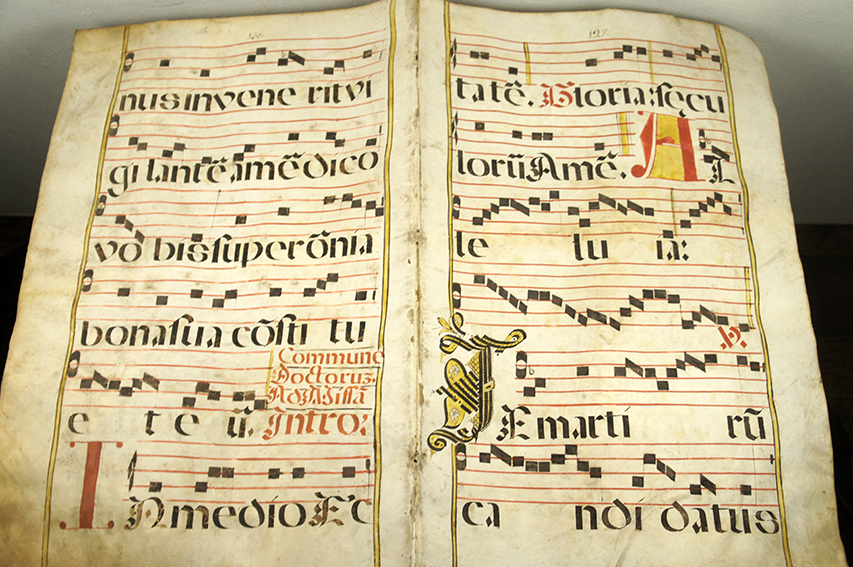 126
nus invene rit vi
gi lantẽ amẽ dico
vo bis super õnia
bona sua cõsti tu
Commune
Doctoruz.
Ad Missã
e t e ũ. Intro:
IN medio Ec
127
tatẽ. Gloria: secu
lorũ Amẽ. AL
le lu ia:
℣.
TE marti rũ
ca ndi datus